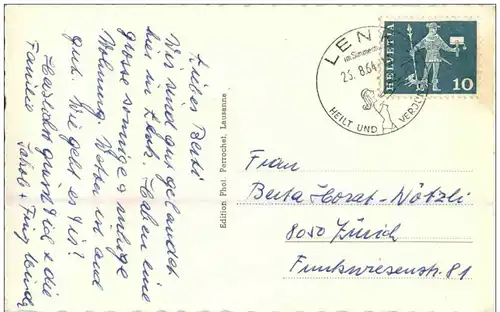 Lieber Berti
Wir sind gut gelandet
hier in Lenk. Haben eine
grosse sonnige & ruhige
Wohnung. Wetter ist auch
gut. Wie geht es Dir?
Herzlich grüsst Dich & die
Familie
Jakob +
Edition Phot. Perrochet, Lausanne
LENK
im Simmenth
25.8.64
HEILT UND VERJÜN
HELVETIA
10
Frau
Berta Horat-Nötzli
8050 Zürich
Funkwiesenstr. 81